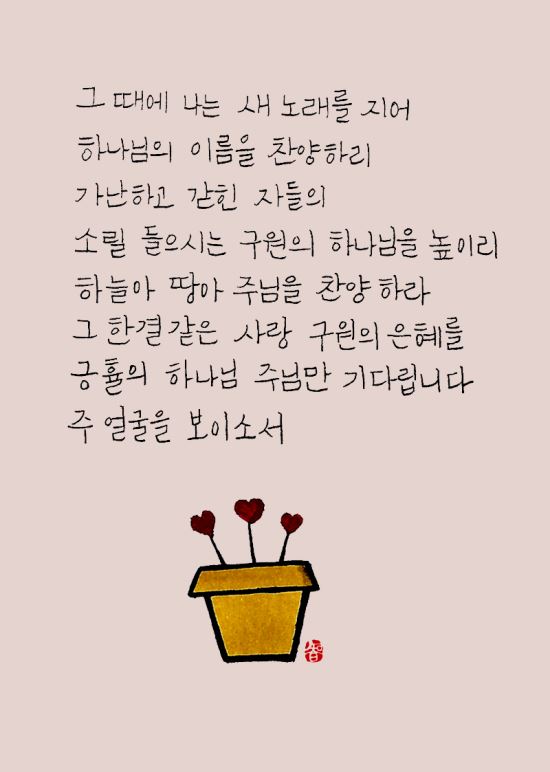 그 때에 나는 새 노래를 지어
하나님의 이름을 찬양하리
가난하고 갇힌 자들의
소릴 들으시는 구원의 하나님을 높이리
하늘아 땅아 주님을 찬양 하라
그 한결같은 사랑 구원의 은혜를
긍휼의 하나님 주님만 기다립니다
주 얼굴을 보이소서